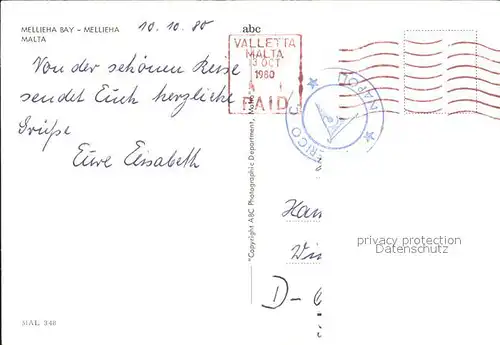 MELLIEHA BAY – MELLIEHA
MALTA
10.10.80
abc
VALLETTA
MALTA
13 OCT
1980
PAID
Von der schönen Reise
sendet Euch herzliche
Grüße
Eure Elisabeth
ERICO C
NAPOLI
*Copyright ABC Photographic Department, Malta
Han
Wi
D-
privacy protection
Datenschutz
MAL 348